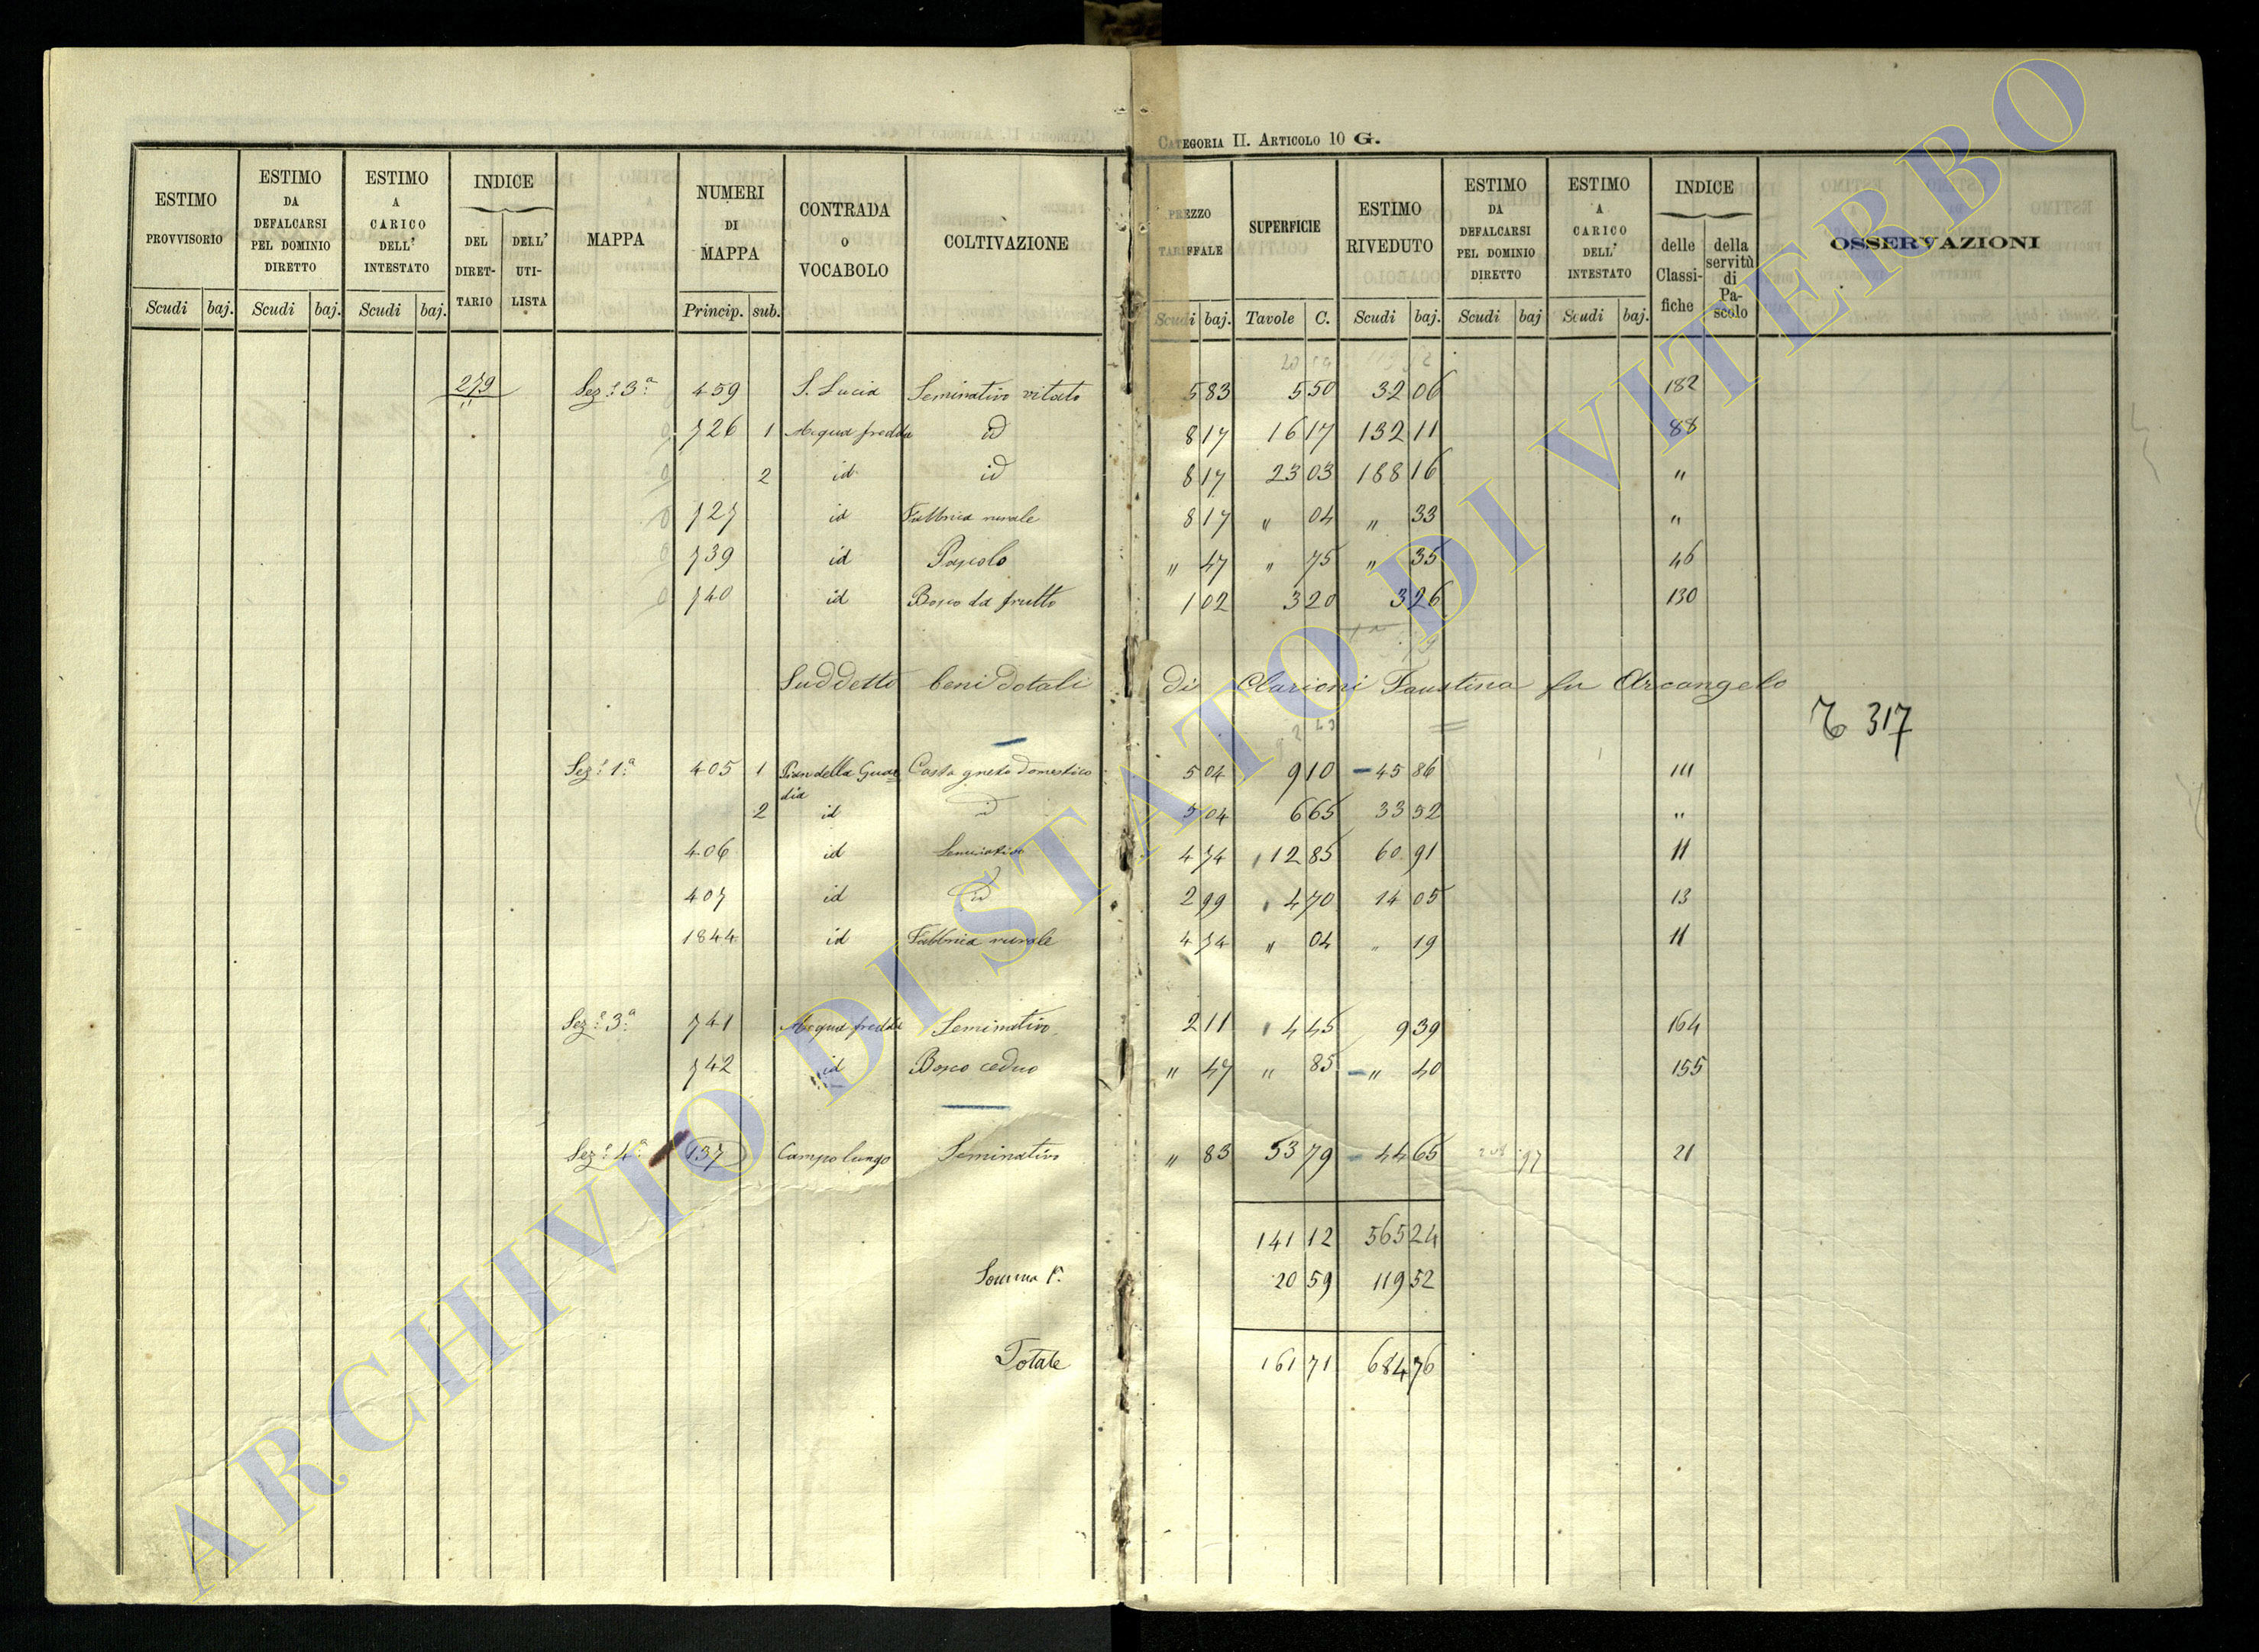 CATEGORIA II. ARTICOLO 10 G.
ESTIMO PROVVISORIO
ESTIMO DA DEFALCARSI PEL DOMINIO DIRETTO
ESTIMO A CARICO DELL' INTESTATO
INDICE
DEL DIRET-TARIO
DELL' UTI-LISTA
MAPPA
NUMERI DI MAPPA
CONTRADA O VOCABOLO
COLTIVAZIONE
PREZZO TARIFFALE
SUPERFICIE
ESTIMO RIVEDUTO
ESTIMO DA DEFALCARSI PEL DOMINIO DIRETTO
ESTIMO A CARICO DELL' INTESTATO
INDICE
delle Classi-fiche
della servitù di Pa-scolo
OSSERVAZIONI
Scudi baj. Scudi baj. Scudi baj. Princip. sub. Scudi baj. Tavole C. Scudi baj. Scudi baj Scudi baj.
279 Sez.e 3a 459 S. Lucia Seminativo vitato 5 83 5 50 32 06 182
726 1 Acqua fredda id 8 17 16 17 132 11 88
2 id id 8 17 23 03 188 16 "
727 id Fabbrica rurale 8 17 " 04 " 33 "
739 id Pascolo " 47 " 75 " 35 46
740 id Bosco da frutto 1 02 3 20 3 26 130
Suddetto beni dotali di Clarioni Faustina fu Arcangelo
317
Sez.e 1a 405 1 Pian della Guar=dia Castagneto domestico 5 04 9 10 45 86 111
2 id id 5 04 6 65 33 52 "
406 id Seminativo 4 74 12 85 60 91 11
407 id id 2 99 4 70 14 05 13
1844 id Fabbrica rurale 4 74 " 04 " 19 11
Sez.e 3a 741 Acqua fredda Seminativo 2 11 4 45 9 39 164
742 id Bosco ceduo " 47 " 85 " 40 155
Sez.e 4a 137 Campo lungo Seminativo " 83 53 79 44 65 21
141 12 565 24
Somma 1a 20 59 119 52
Totale 161 71 684 76
ARCHIVIO DI STATO DI VITERBO